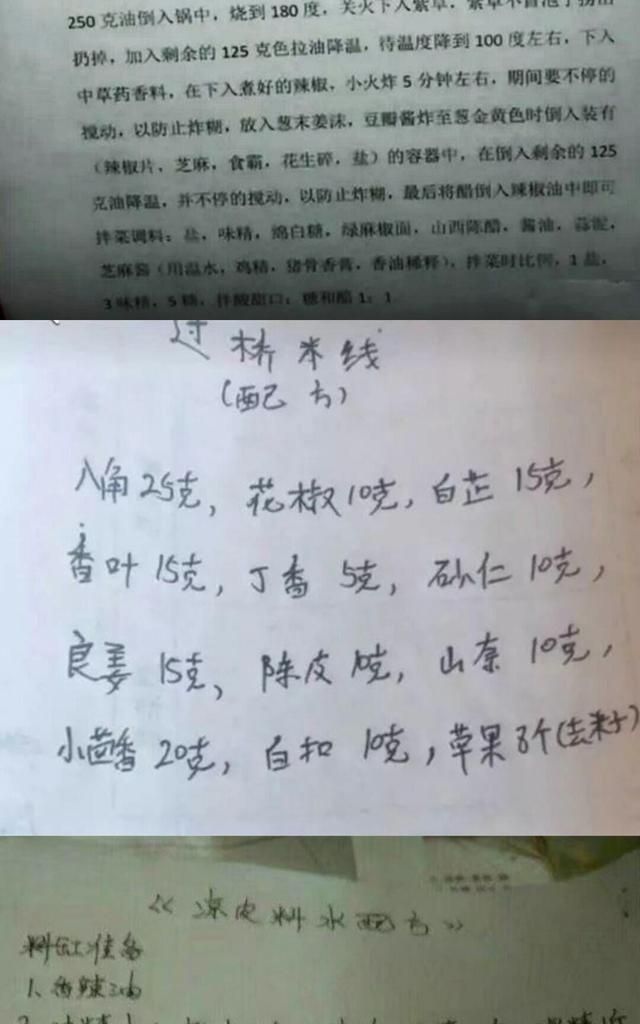 250 克油倒入锅中，烧到 180 度，关火下入紫草，紫草不冒泡了捞出
扔掉，加入剩余的 125 克色拉油降温，待温度降到 100 度左右，下入
中草药香料，在下入煮好的辣椒，小火炸 5 分钟左右，期间要不停的
搅动，以防止炸糊，放入葱末姜沫，豆瓣酱炸至葱金黄色时倒入装有
（辣椒片，芝麻，食霸，花生碎，盐）的容器中，在倒入剩余的 125
克油降温，并不停的搅动，以防止炸糊，最后将醋倒入辣椒油中即可
拌菜调料：盐，味精，绵白糖，绿麻椒面，山西陈醋，酱油，蒜泥，
芝麻酱（用温水，鸡精，猪骨香膏，香油稀释），拌菜时比例，1 盐，
3 味精，5 糖，拌酸甜口：糖和醋 1：1
过桥米线
（配方）
八角25克，花椒10克，白芷 15克，
香叶 15克，丁香 5克，砂仁 10克，
良姜 15克，陈皮 10克，山奈 10克，
小茴香 20克，白扣 10克，草果 8个(去籽)
《凉皮料水配方》
料缸准备
1、香辣油